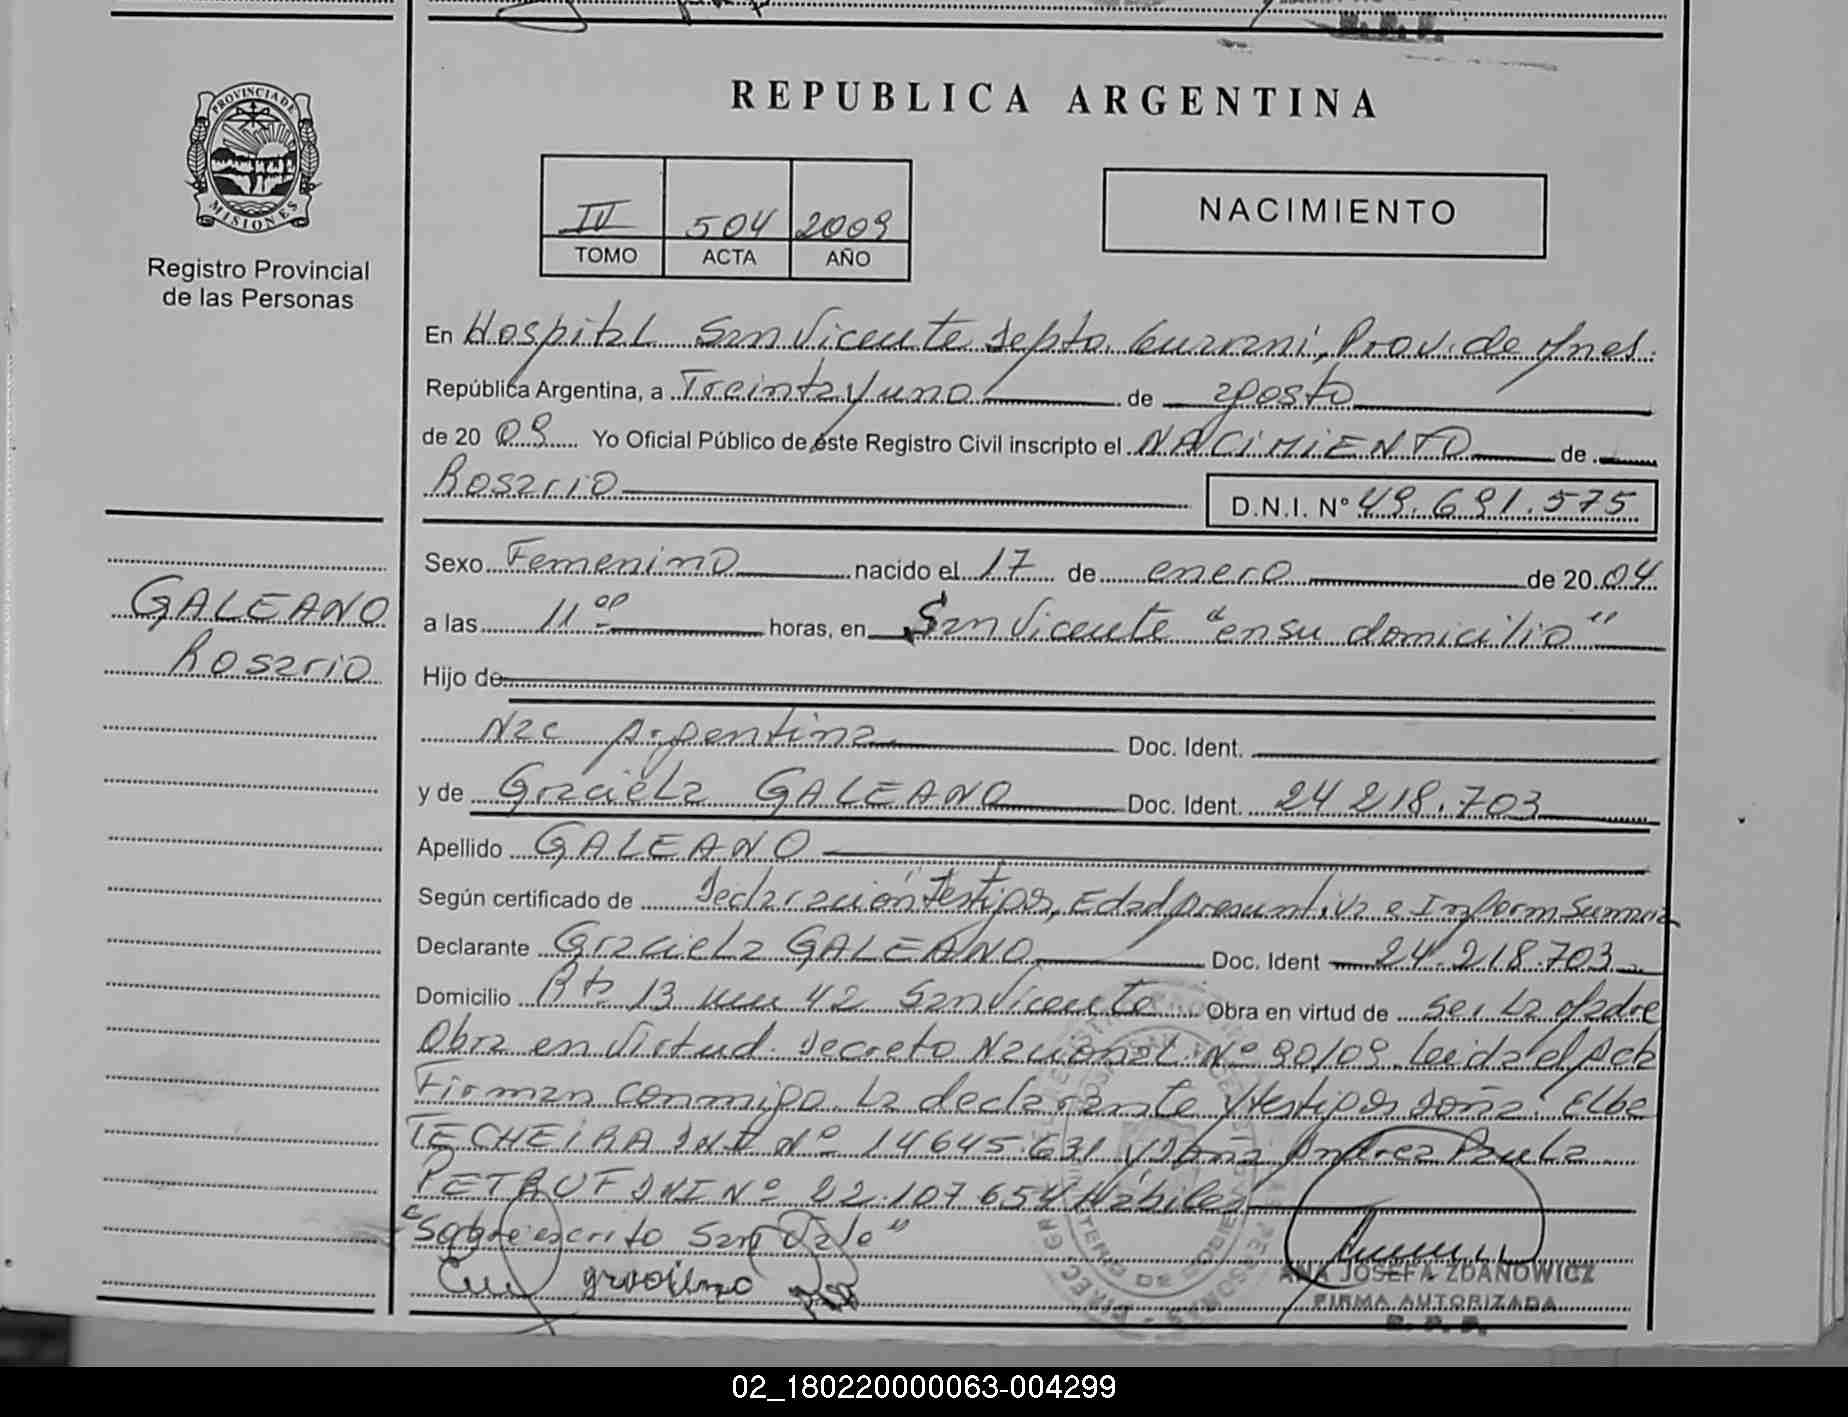 REPUBLICA ARGENTINA
PROVINCIA DE
MISIONES
Registro Provincial
de las Personas
IV 504 2009
TOMO ACTA AÑO
NACIMIENTO
En Hospital San Vicente Depto. Guarani, Prov. de Mnes.
República Argentina, a Treinta y uno de agosto
de 20 09 Yo Oficial Público de éste Registro Civil inscripto el NACIMIENTO de
Rosario
D.N.I. Nº 49.691.575
GALEANO
Rosario
Sexo Femenino nacido el 17 de enero de 20 04
a las 11 00 horas, en San Vicente "en su domicilio"
Hijo de
Nac Argentina Doc. Ident.
y de Graciela GALEANO Doc. Ident. 24 218.703
Apellido GALEANO
Según certificado de Declaración Testigos, Edad presuntiva e Inform Sumaria
Declarante Graciela GALEANO Doc. Ident 24.218.703
Domicilio Rta 13 km 42 San Vicente Obra en virtud de ser la Madre
Obra en Virtud Decreto Nacional Nº 90/09 Leida el Acta
Firman conmigo la declarante y testigos Doña: Elba
TECHEIRA DNI Nº 14645.631 y Doña Andrea Paula
PETRUF DNI Nº 22.107.654 Hábiles
"Sobreescrito San Vale"
ANA JOSEFA ZDANOWICZ
FIRMA AUTORIZADA
R. P. P.
02_180220000063-004299